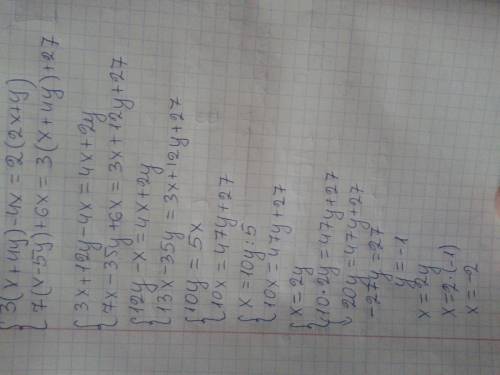 {3(x+4y)-4x = 2(2x+y)
{7(x-5y)+6x = 3(x+4y)+27
{3x+12y-4x=4x+2y
{7x-35y+6x=3x+12y+27
{12y-x=4x+2y
{13x-35y=3x+12y+27
{10y=5x
{10x=47y+27
{x=10y:5
{10x=47y+27
{x=2y
{10·2y=47y+27
20y=47y+27
-27y=27
y=-1
x=2y
x=2·(-1)
x=-2